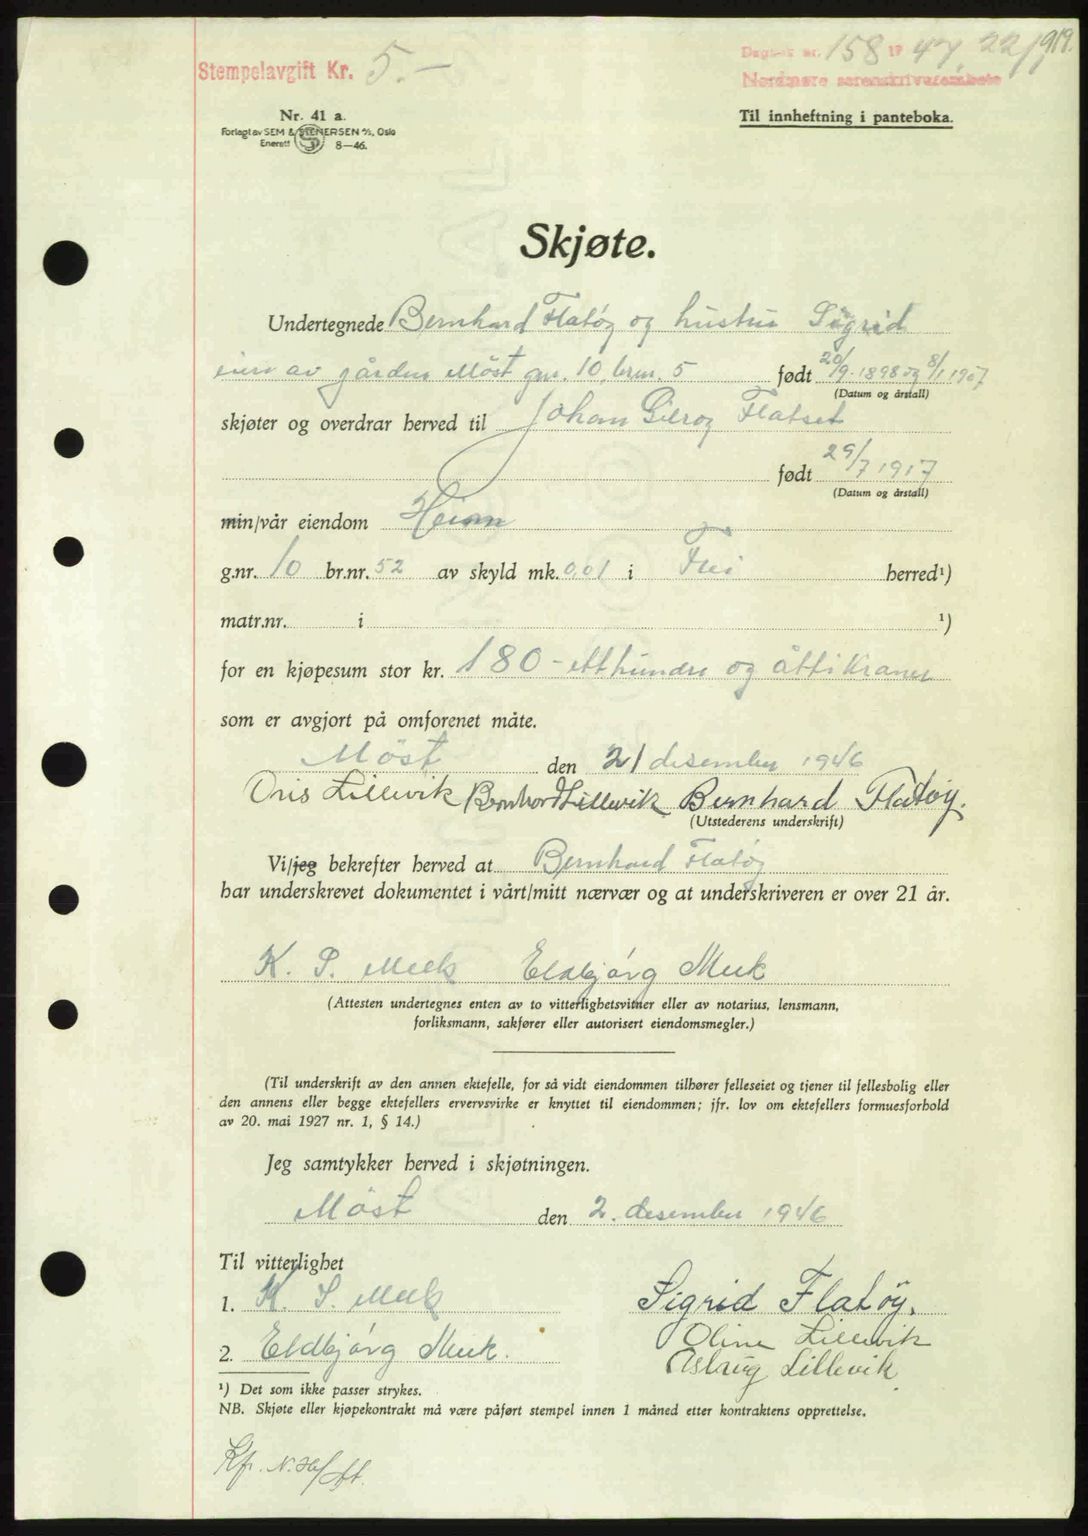 Stempelavgift Kr. 5.-
Dagbok nr. 158 19 47, 22/1 919.
Nordmøre sorenskriverembete
Nr. 41 a.
Forlagt av SEM & STENERSEN A/S, Oslo
Enerett 8-46.
Til innheftning i panteboka.
Skjøte.
Undertegnede Bernhard Flatøy og hustru Sigrid
eier av gården Møst gnr. 10, brnr. 5 født 20/9-1898 og 8/1 1907
(Datum og årstall)
skjøter og overdrar herved til Johan Flatset
født 29/7 1917
(Datum og årstall)
min/vår eiendom Heim
g.nr. 10 br.nr. 52 av skyld mk. 0,01 i Frei herred¹)
matr.nr. i ¹)
for en kjøpesum stor kr. 180 - etthundre og åtti kroner
som er avgjort på omforenet måte.
Møst den 21 desember 1946
Lillevik Bernhard Lillevik Bernhard Flatøy.
(Utstederens underskrift)
Vi/jeg bekrefter herved at Bernhard Flatøy
har underskrevet dokumentet i vårt/mitt nærvær og at underskriveren er over 21 år.
K. S. Meek Eldbjørg Meek
(Attesten undertegnes enten av to vitterlighetsvitner eller av notarius, lensmann,
forliksmann, sakfører eller autorisert eiendomsmegler.)
(Til underskrift av den annen ektefelle, for så vidt eiendommen tilhører felleseiet og tjener til fellesbolig eller
den annens eller begge ektefellers ervervsvirke er knyttet til eiendommen; jfr. lov om ektefellers formuesforhold
av 20. mai 1927 nr. 1, § 14.)
Jeg samtykker herved i skjøtningen.
Møst den 2. desember 1946
Til vitterlighet
1. K. S. Meek Sigrid Flatøy.
Oline Lillevik
2. Eldbjørg Meek. Astrug Lillevik
¹) Det som ikke passer strykes.
NB. Skjøte eller kjøpekontrakt må være påført stempel innen 1 måned etter kontraktens opprettelse.